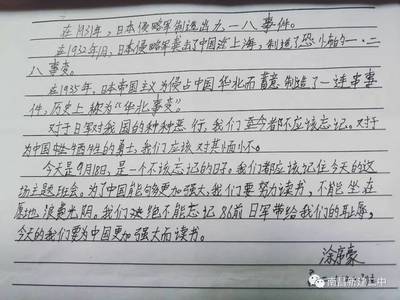 在1931年,日本侵略军制造出九一八事件。
在1932年1月,日本侵略军袭击了中国上海,制造了恐怖的一·二
八事变。
在1935年,日本帝国主义为侵占中国华北而蓄意制造了一连串事
件,历史上称为“华北事变”。
对于日军对我国的种种恶行,我们至今都不应该忘记。对于
为中国牺牲的勇士,我们应该对其悼念。
今天是9月18日,是一个不该忘记的日子。我们都应该记住今天的这
场主题班会。为了中国能够更加强大,我们要努力读书,不能坐在
原地浪费光阴。我们决绝不能忘记86前日军带给我们的耻辱,
今天的我们要为中国更加强大而读书。
涂
南昌新建二中